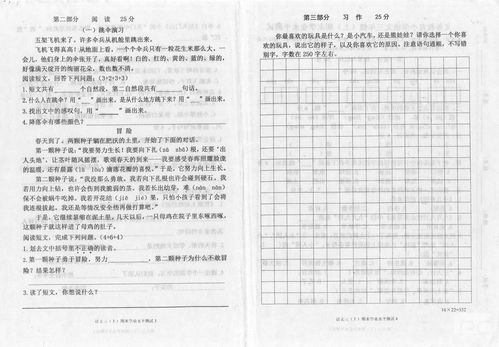 第二部分 阅 读 25分
(一) 跳伞演习
五架飞机来了，许多伞兵从机舱里跳出来。
飞机飞得真高！从地面上看，一个个伞兵只有一粒花生米那么大。一
会儿，他们身上的伞张开了，真好看啊！白的、红的、黄的、蓝的、绿的，
好像满天绽开的绚丽花朵，数也数不清。
阅读短文，回答下列问题：(3+2+3+3)
1. 短文共有 个自然段，第二自然段共有 句话。
2. 什么人在跳伞？用“ ”画出来。是从什么地方跳下来？用“ ”画出来。
3. 找出文中的感叹句，用“ ”画出来。
4. 降落伞有哪些颜色？
冒 险
春天到了，两颗种子躺在肥沃的土里，开始了下面的对话。
第一颗种子说：“我要努力生长！我要向下扎 (zā zhā) 根，还要‘出
人头地’，让茎叶随风摇摆，歌颂春天的到来——我要感受春晖照耀脸庞
的温暖，还有晨露 (lù lòu) 滴落花瓣的喜悦。”于是，它努力向上生长。
第二颗种子说：“我没那么勇敢。我若向下扎根也许会碰到硬石，我
若用力向上钻，也许会伤到我脆弱的茎，我若长出幼芽，难 (nán nàn)
保不会被蜗牛吃掉，我若开花结 (jiē jié) 果，只怕小孩子看到了会将
我连根拔起，我还是等情况安全些再做打算吧。”
于是，它继续瑟缩在泥土里。几天以后，一只母鸡在院子里东啄西啄，
这颗种子就这样进了母鸡的肚子。
阅读短文，完成下列问题。(4+6+4)
1. 划去文中括号里不正确的读音。
2. 第一颗种子勇于冒险，努力 ，第二颗种子为什么不敢冒
险？结果怎样？
3. 读了短文，你想说什么？
语文三(上)期末学业水平测试3
第三部分 习 作 25分
你最喜欢的玩具是什么？是小汽车，还是熊娃娃？请你选择一个你喜
欢的玩具，说出它的样子，以及你喜欢它的原因。注意语句通顺，不写错
别字，字数在250字左右。
16×22=352
语文三(上)期末学业水平测试4